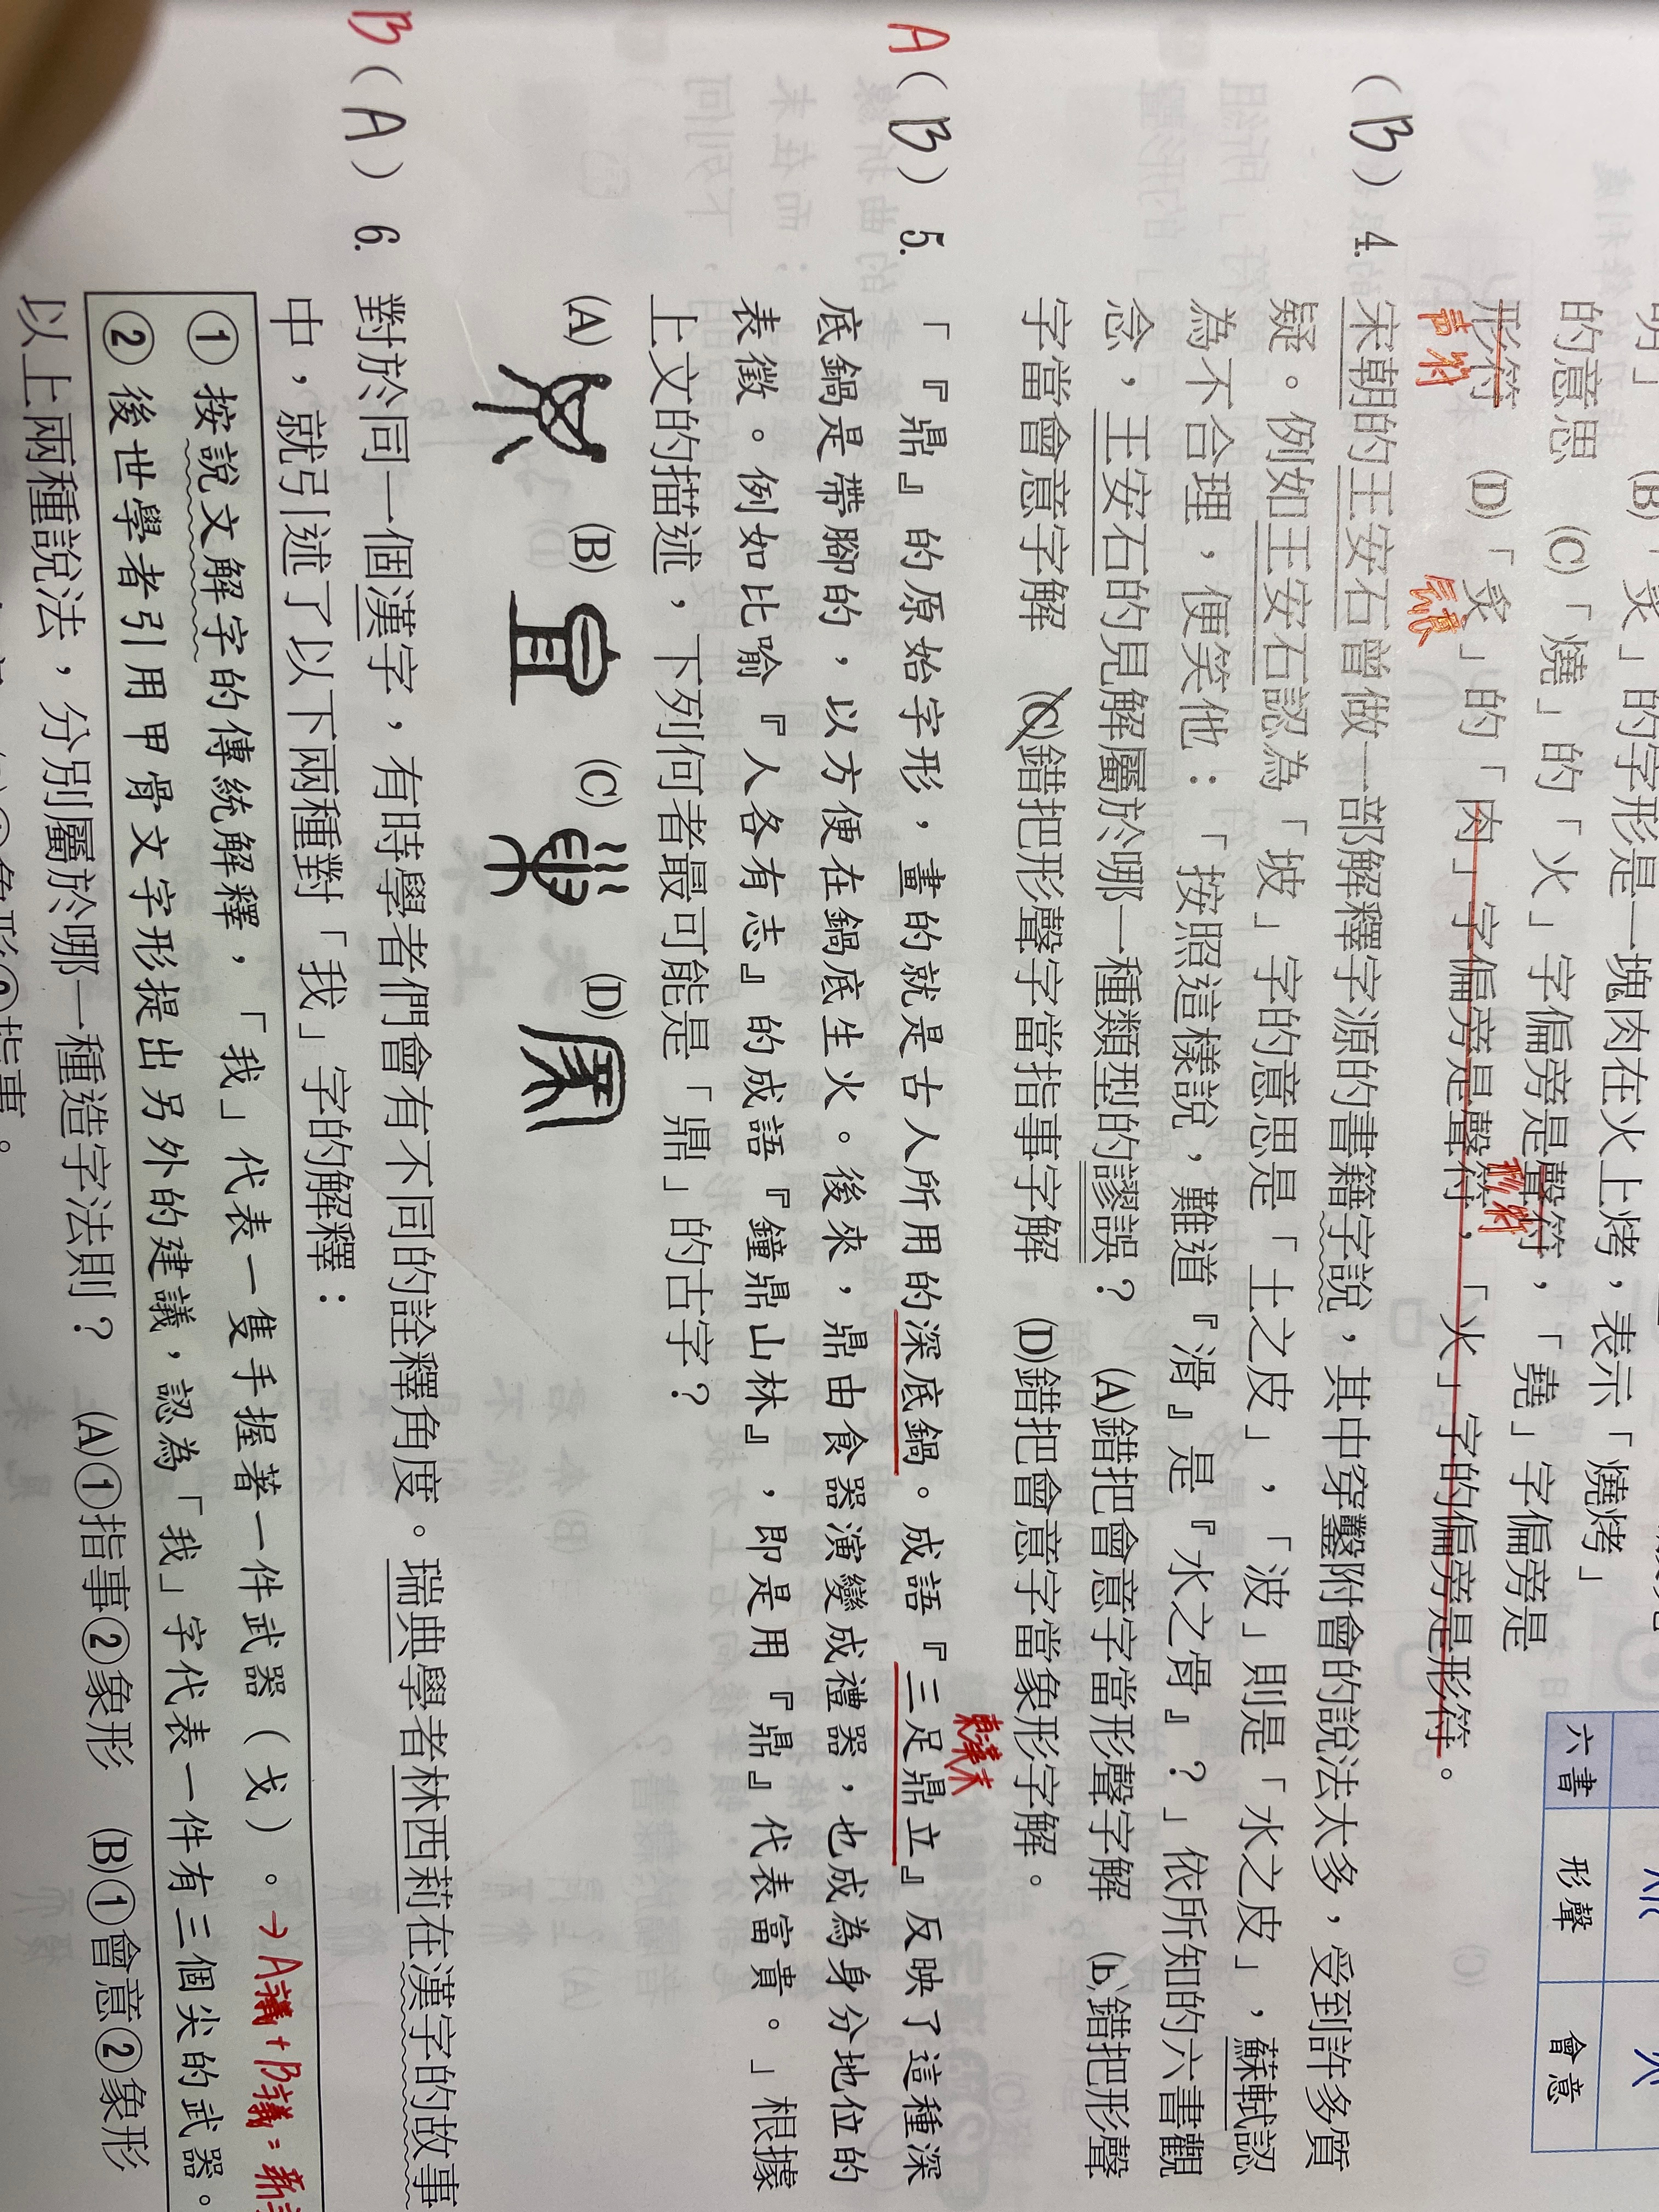 的意思　(C)「燒」的「火」字偏旁是聲符，「堯」字偏旁是
形符　(D)「炙」的「肉」字偏旁是聲符，「火」字的偏旁是形符。
声符
形符
六書 形聲 會意
(B) 4. 宋朝的王安石曾做一部解釋字源的書籍字說，其中穿鑿附會的說法太多，受到許多質
疑。例如王安石認為「坡」字的意思是「土之皮」，「波」則是「水之皮」，蘇軾認
為不合理，便笑他：「按照這樣說，難道『滑』是『水之骨』？」依所知的六書觀
念，王安石的見解屬於哪一種類型的謬誤？　(A)錯把會意字當形聲字解　(b)錯把形聲
字當會意字解　(C)錯把形聲字當指事字解　(D)錯把會意字當象形字解。
東漢末
A (B) 5. 「『鼎』的原始字形，畫的就是古人所用的深底鍋。成語『三足鼎立』反映了這種深
底鍋是帶腳的，以方便在鍋底生火。後來，鼎由食器演變成禮器，也成為身分地位的
表徵。例如比喻『人各有志』的成語『鐘鼎山林』，即是用『鼎』代表富貴。」根據
上文的描述，下列何者最可能是「鼎」的古字？
(A) (B) (C) (D)
B (A) 6. 對於同一個漢字，有時學者們會有不同的詮釋角度。瑞典學者林西莉在漢字的故事
中，就引述了以下兩種對「我」字的解釋：
① 按說文解字的傳統解釋，「我」代表一隻手握著一件武器（戈）。→A議+B議=新
② 後世學者引用甲骨文字形提出另外的建議，認為「我」字代表一件有三個尖的武器。
以上兩種說法，分別屬於哪一種造字法則？　(A)①指事②象形　(B)①會意②象形